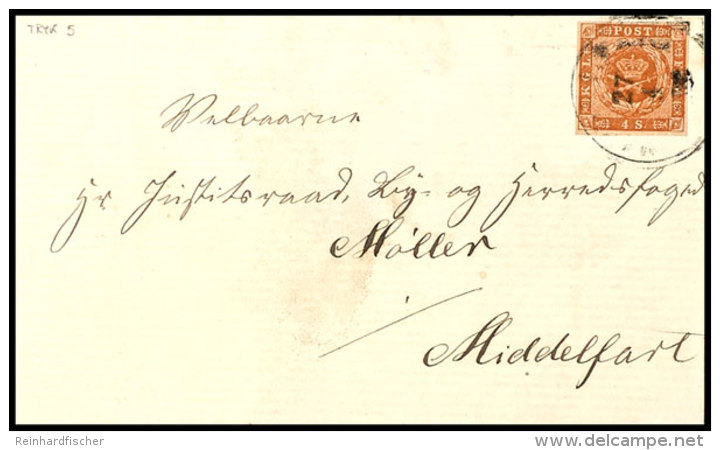 TRYK 5
K G L POST F
4 S.
27
4
Velbaarne
Hr Justitsraad, By- og Herredsfoged
Møller
Middelfart
Reinhardfischer
delcampe.net